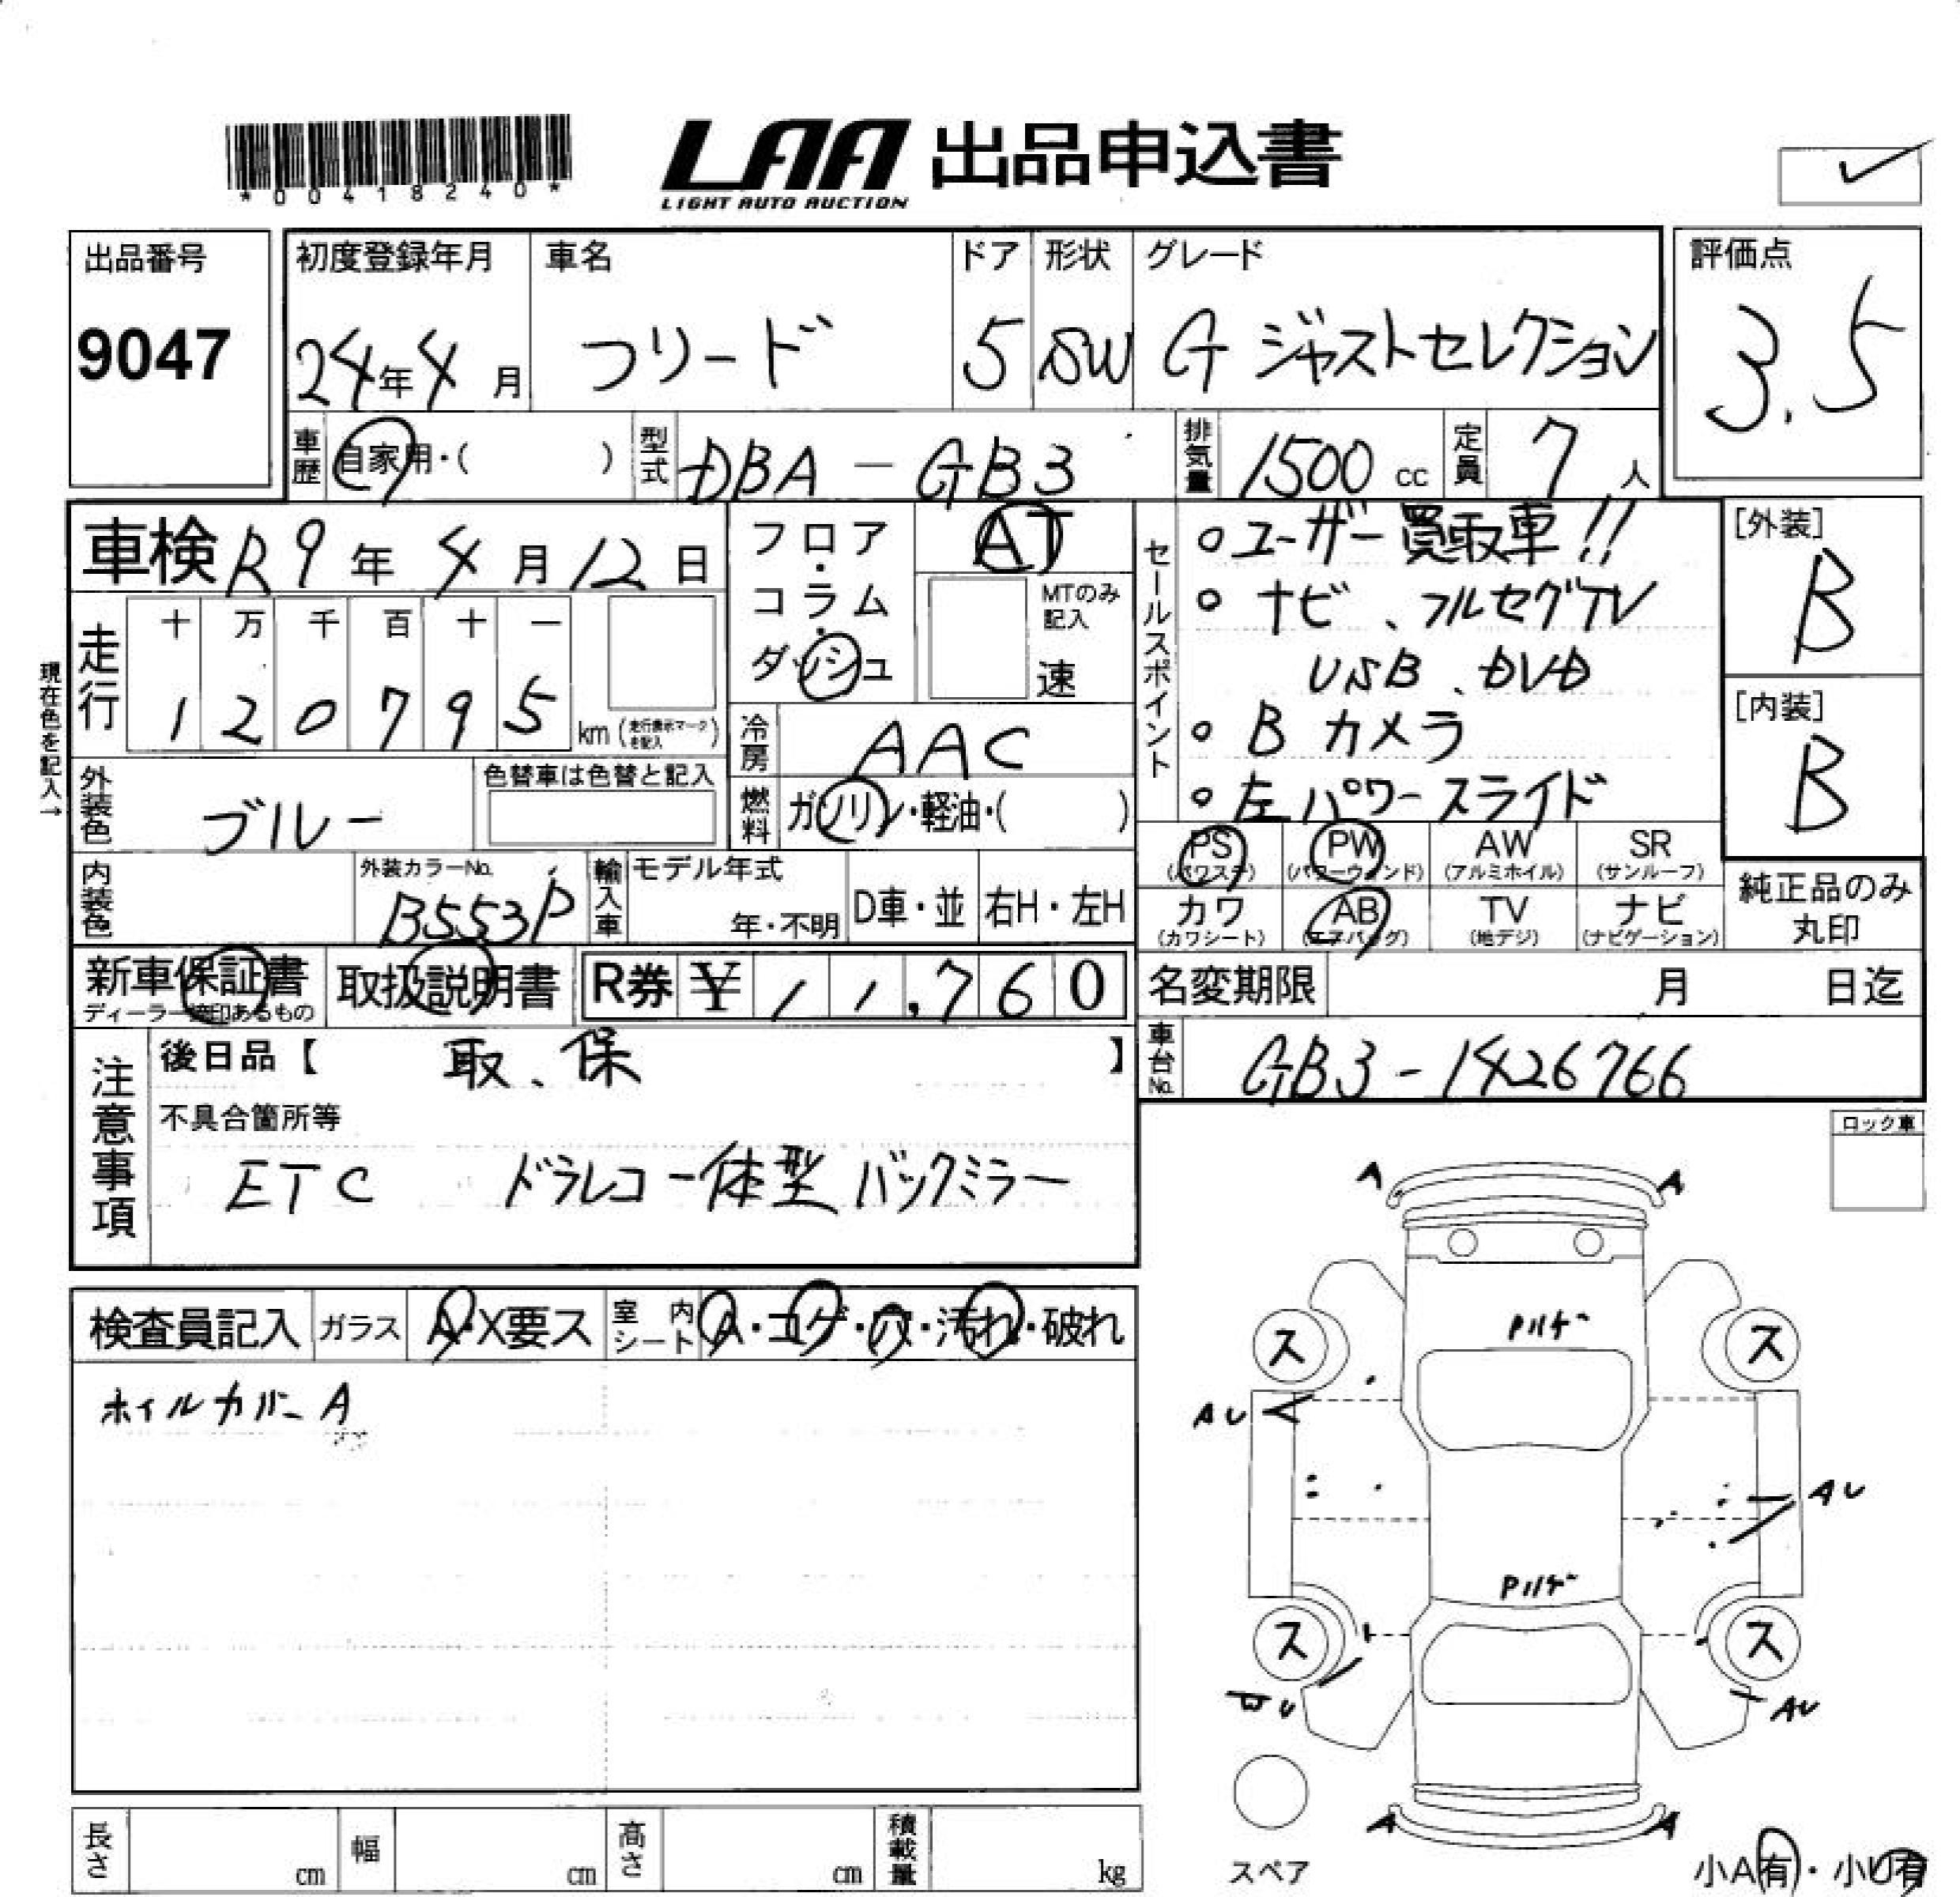 *00418240*
LAA 出品申込書
LIGHT AUTO AUCTION
出品番号
9047
初度登録年月
24年4月
車名
フリード
ドア
5
形状
SW
グレード
G ジャストセレクション
評価点
3.5
車歴 自家用・( )
型式 DBA-GB3
排気量 1500 cc
定員 7人
車検 R9年4月12日
フロア・コラム・ダッシュ
AT
MTのみ記入
速
セールスポイント
○ユーザー買取車!!
○ナビ、フルセグTV
USB、DVD
○Bカメラ
○左パワースライド
[外装]
B
[内装]
B
現在色を記入→
走行
十 万 千 百 十 一
1 2 0 7 9 5 km (走行表示マークを記入)
冷房 AAC
外装色 ブルー
色替車は色替と記入
燃料 ガソリン・軽油・( )
内装色
外装カラーNo.
B553P
輸入車
モデル年式
年・不明
D車・並
右H・左H
PS (パワステ)
PW (パワーウィンド)
AW (アルミホイル)
SR (サンルーフ)
カワ (カワシート)
AB (エアバッグ)
TV (地デジ)
ナビ (ナビゲーション)
純正品のみ
丸印
新車保証書
ディーラー捺印あるもの
取扱説明書
R券 ¥11,760
名変期限 月 日迄
車台No. GB3-1426766
注意事項
後日品【 取、保 】
不具合箇所等
ETC ドラレコ一体型バックミラー
ロック車
検査員記入
ガラス A・X要ス
室内シート A・コゲ・穴・汚れ・破れ
ホイルカバーA
A A
Pハゲ
ス ス
AU
AU
Pハゲ
ス ス
AU
A A
スペア
小A有・小U有
長さ cm
幅 cm
高さ cm
積載量 kg